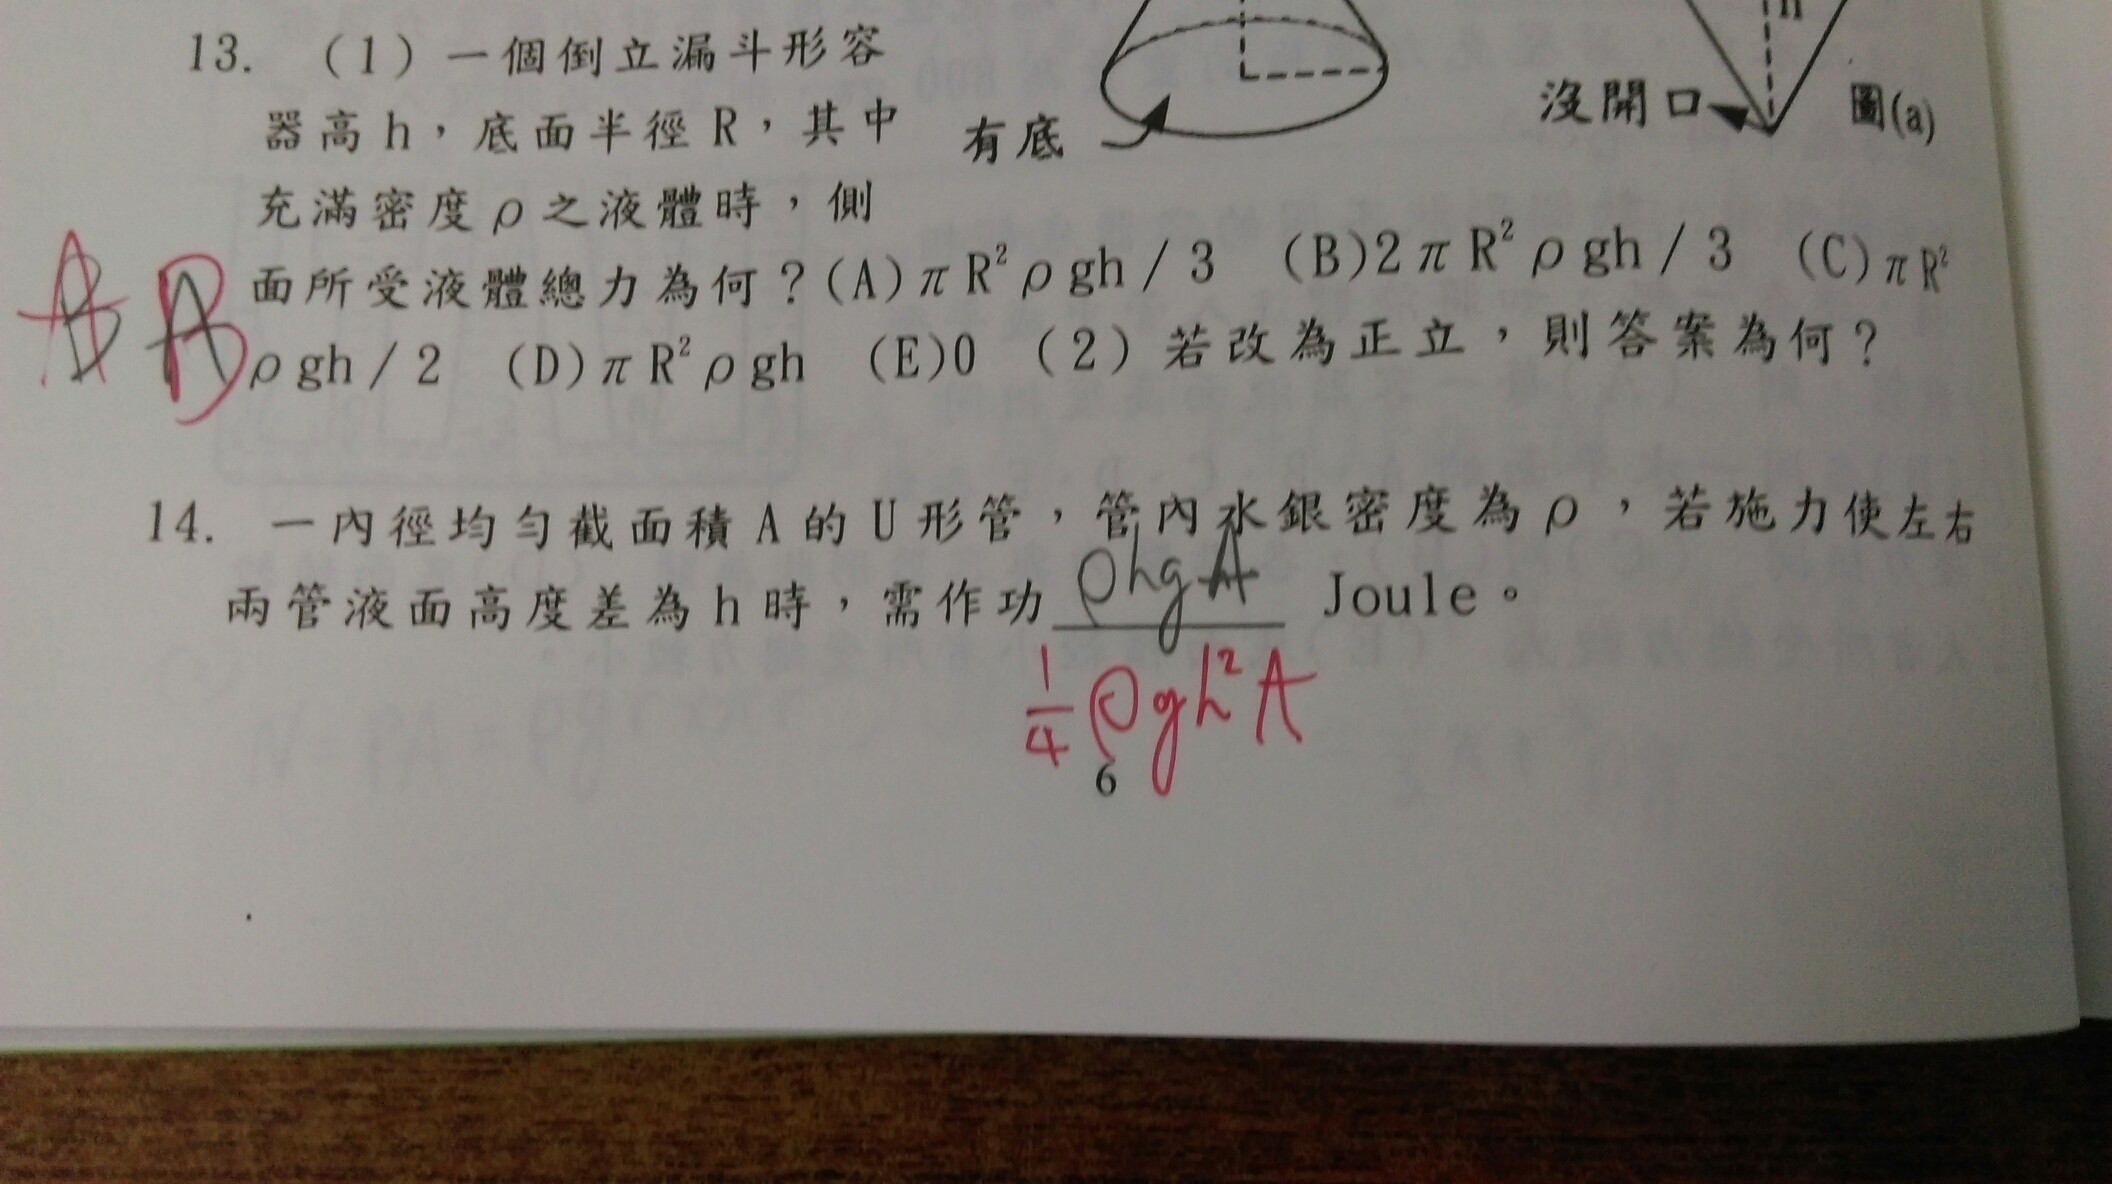 13. (1) 一個倒立漏斗形容
器高h，底面半徑R，其中
充滿密度ρ之液體時，側
面所受液體總力為何？(A)πR²ρgh/3 (B)2πR²ρgh/3 (C)πR²
ρgh/2 (D)πR²ρgh (E)0 (2) 若改為正立，則答案為何？
有底
h
沒開口
圖(a)
A B
14. 一內徑均勻截面積A的U形管，管內水銀密度為ρ，若施力使左右
兩管液面高度差為h時，需作功 ρhgA Joule。
1/4 ρgh²A
6